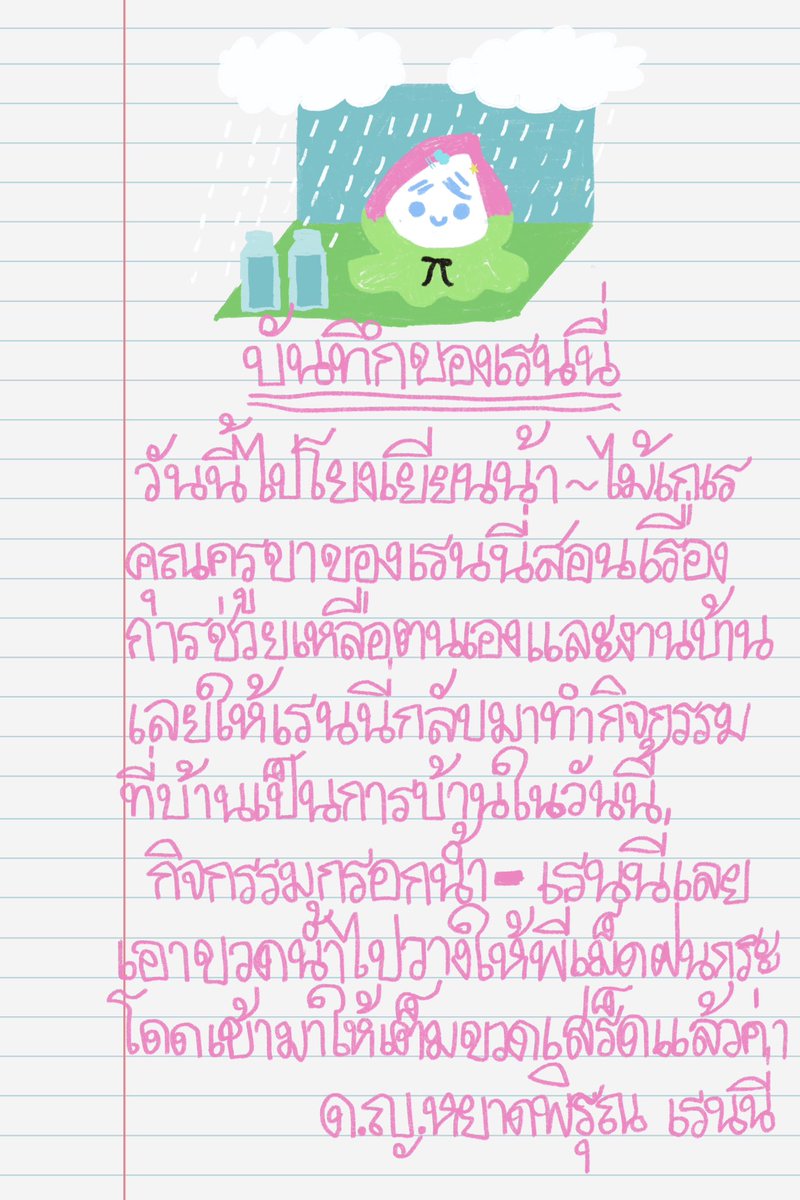 บันทึกของเรนนี่
วันนี้ไปโยงเยียนน้า~ไม้เกเร
คุณครูขาของเรนนี่สอนเรื่อง
การช่วยเหลือตนเองและงานบ้าน
เลยให้เรนนี่กลับมาทำกิจกรรม
ที่บ้านเป็นการบ้านในวันนี้
กิจกรรมกรอกน้ำ - เรนนี่เลย
เอาขวดน้ำไปวางให้พี่เม็ดฝนกระ
โดดเข้ามาให้เต็มขวดเสร็ดแล้วค่า
ด.ญ.หยาดพิรุณ เรนนี่